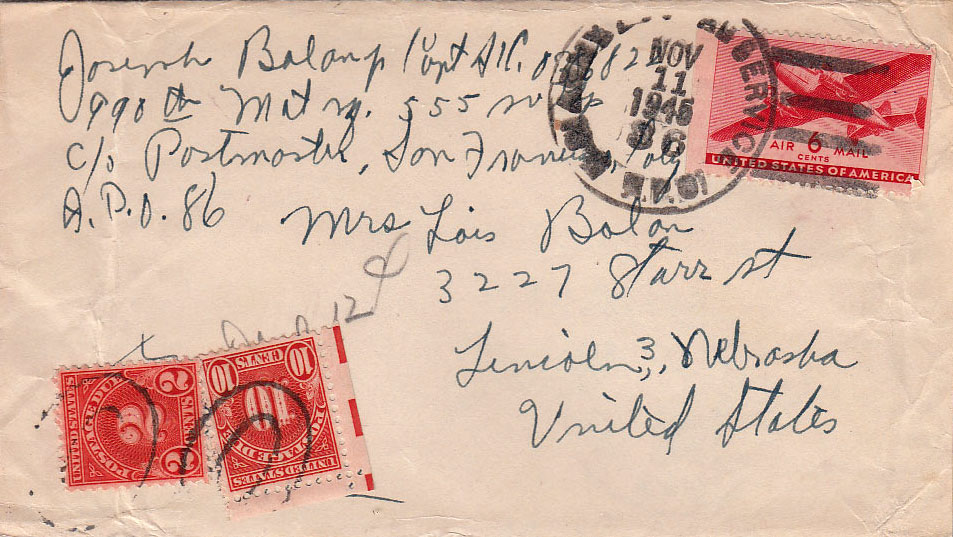 Joseph Bolan Capt AC.
990th Mat sq. 555
c/o Postmaster, San Francisco, Calif
A.P.O. 86
NOV
11
1945
SERVICE
AIR 6 MAIL
CENTS
UNITED STATES OF AMERICA
Mrs Lois Bolan
3227 Starr st
Lincoln 3, Nebraska
United States
12
2
2
2
UNITED STATES
POSTAGE DUE
10
CENTS
10
10
POSTAGE DUE
UNITED STATES